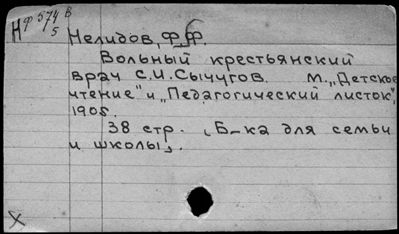 НФ 574 В
5
Нелидов, Ф.Ф.
Вольный крестьянский
врач С.И.Сычугов. М., „Детское
чтение" и „Педагогический листок",
1905.
38 стр. (Б-ка для семьи
и школы).
X